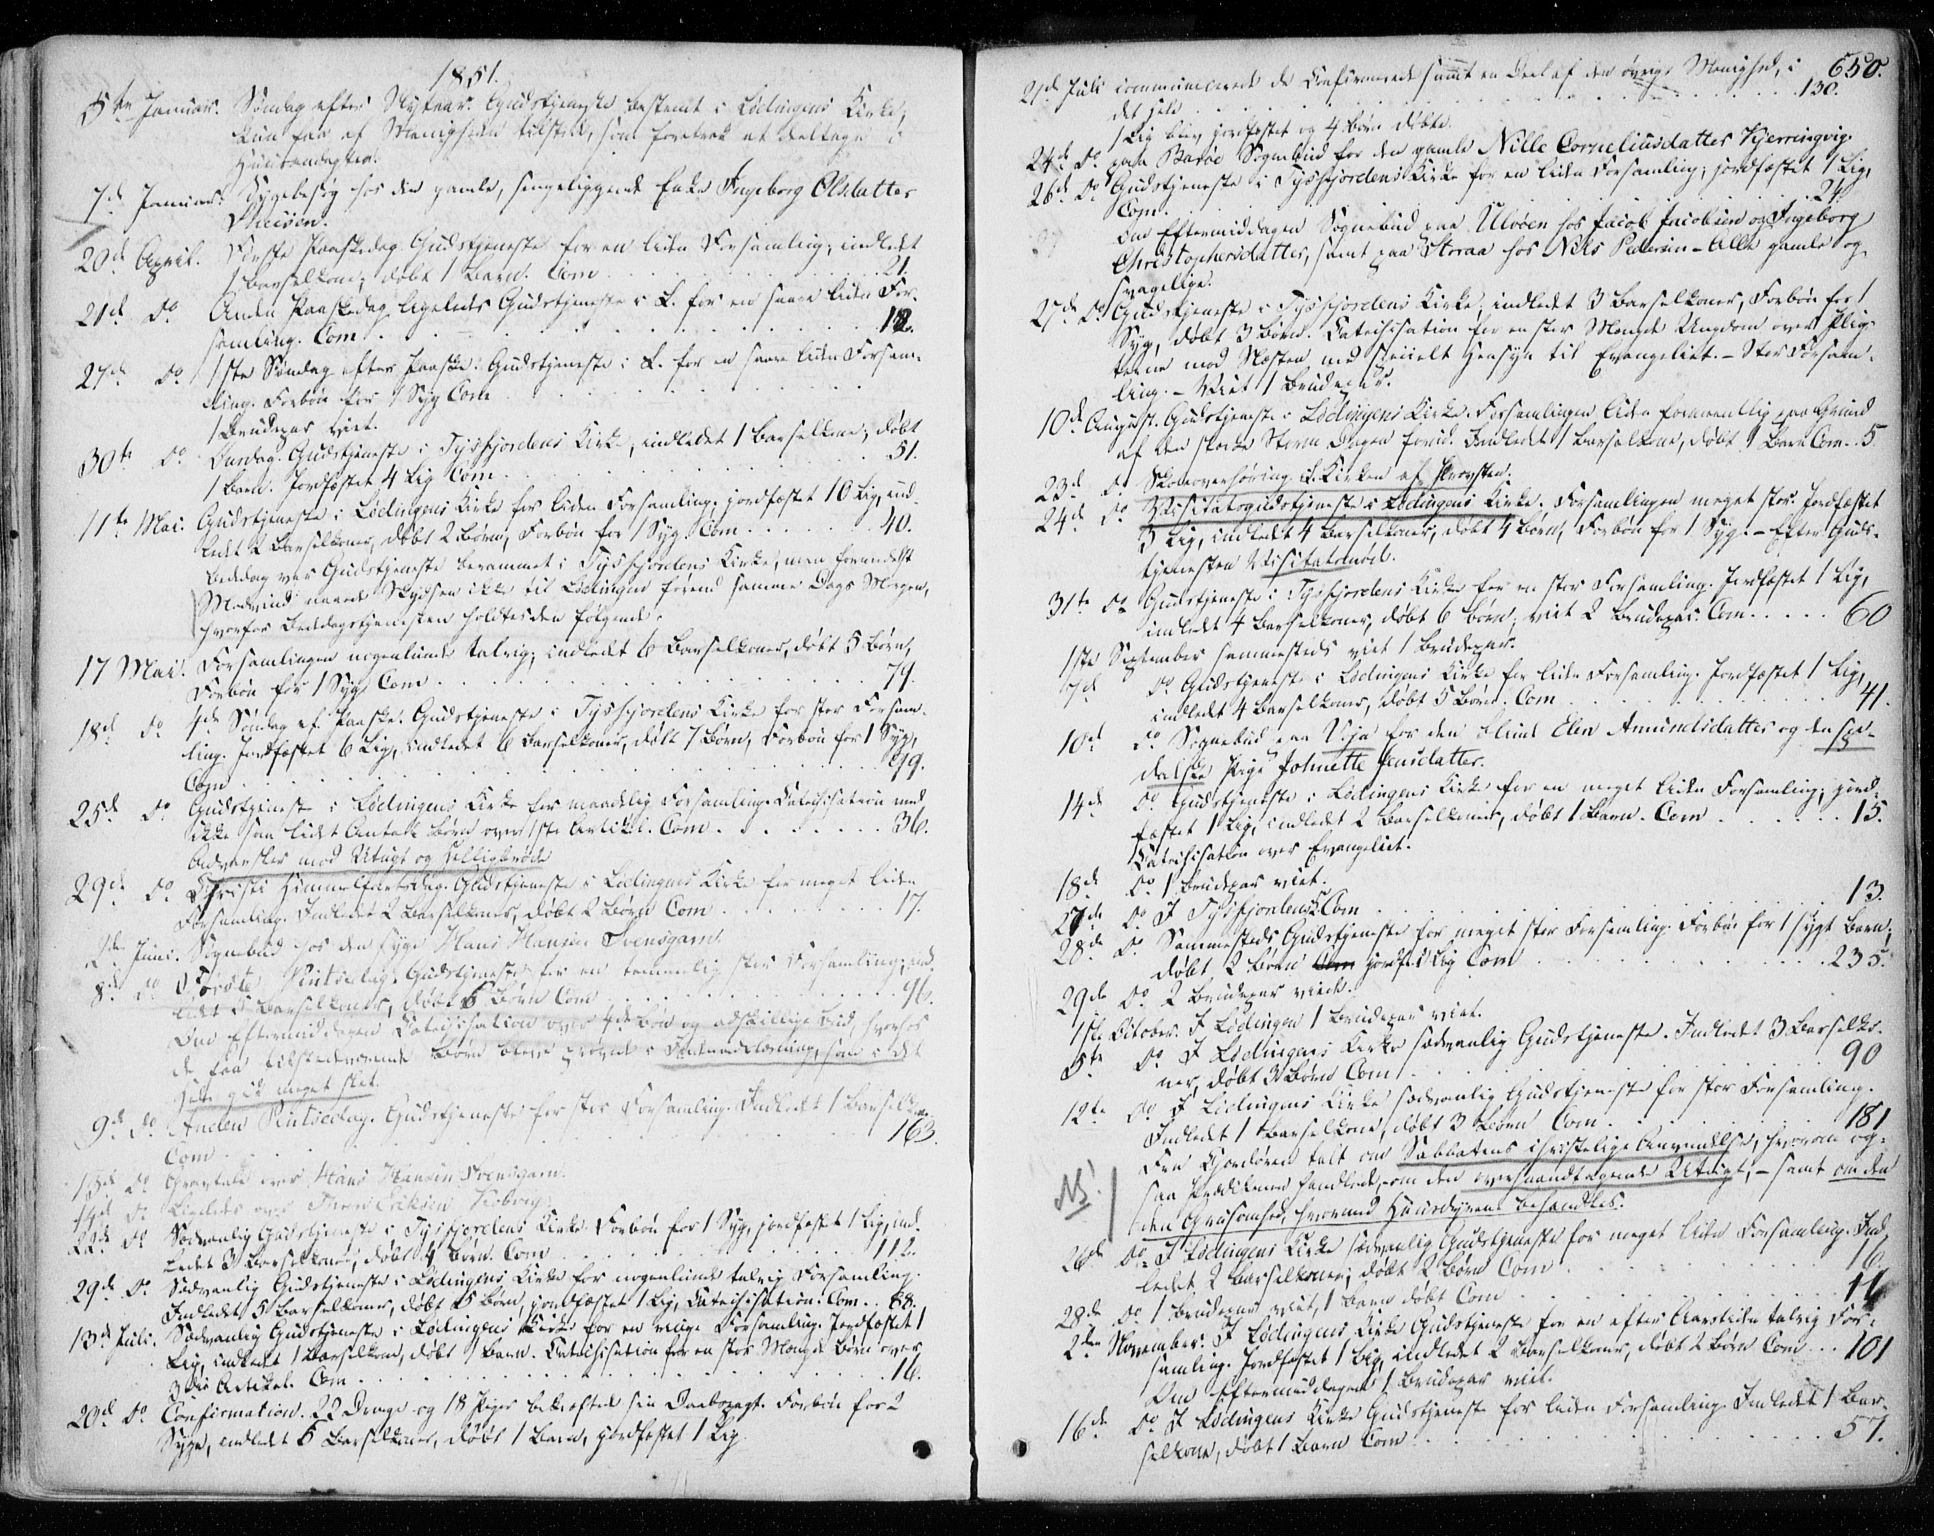 1851.
5te Januar. Søndag efter Nytaar. Gudstjeneste bestemt i Lødingens Kirke,
kun faa af Menigheden tilstede, som foretrak at deeltage i
Huusandagten.
7de Januar. Sygebesøg hos den gamle, sengeliggende Enke Ingeborg Olsdatter
20de April. Første Paaskedag. Gudstjeneste for en liden Forsamling; indledt
1 Barselkone; døbt 1 Barn. Com . . . 21.
21de Do Anden Paaskedag ligeledes Gudstjeneste i L. for en saare liden For-
samling. Com . . . 12.
27de Do 1ste Søndag efter Paaske. Gudstjeneste i L. for en saare liden Forsam-
ling. Forbøn for 1 Syg Com . . .
1 Brudepar viet.
30te Do Onsdag. Gudstjeneste i Tysfjordens Kirke, indledet 1 Barselkone; døbt
1 Barn. Jordfæstet 4 Lig Com . . . 51.
11te Mai. Gudstjeneste i Lødingens Kirke for liden Forsamling. jordfæstet 10 Lig, ind-
ledt 2 Barselkoner, døbt 2 Børn, Forbøn for 1 Syg Com . . . 40.
Beddag var Gudstjeneste berammet i Tysfjordens Kirke, men formedelst
Modvind naaede Skydsen ikke til Lødingen førend samme Dags Morgen,
hvorfor Beddagstjenesten holdtes den følgende.
17 Mai. Forsamlingen nogenlunde talrig; indledet 6 Barselkoner, døbt 5 Børn,
Forbøn for 1 Syg Com . . . 79.
18de Do 4de Søndag ef. Paaske. Gudstjeneste i Tysfjordens Kirke for stor Forsam-
ling. Jordfæstet 6 Lig, indledet 6 Barselkoner, døbt 7 Børn, Forbøn for 1 Syg,
Com . . . 99.
25de Do Gudstjeneste i Lødingens Kirke for maadelig Forsamling. Catechisation med
ikke saa lidet Antal Børn over 1ste Artikel. Com . . . 36.
Advarsler mod Utugt og Helligbrøde
29de Do Christi Himmelfartsdag. Gudstjeneste i Lødingens Kirke for meget liden
Forsamling. Indledet 2 Barselkoner, døbt 2 Børn Com . . . 17.
2den Juni. Sognebud hos den syge Hans Hansen Svensgam.
8de Do Første Pintsedag. Gudstjeneste for en temmelig stor Forsamling; ind-
ledt 5 Barselkoner, døbt 6 Børn Com . . . 96.
Om Eftermiddagen Catechisation over 4de Bøn og adskillige Bud, hvorhos
de faa tilstedeværende Børn bleve prøvede i Indenadlæsning, som i det
Hele gik meget slet.
9de Do Anden Pintsedag. Gudstjeneste for stor Forsamling. Indledet 1 Barselkone.
Com . . . 163.
13de Do Hans Hansen Svensgam.
14de Do Ligeledes over
22de Do Sædvanlig Gudstjeneste i Tysfjordens Kirke. Forbøn for 1 Syg, jordfæstet 1 Lig, ind-
ledet 3 Barselkoner, døbt 4 Børn. Com . . . 112.
29de Do Sædvanlig Gudstjeneste i Lødingens Kirke for nogenlunde talrig Forsamling.
Indledet 5 Barselkoner, døbt 5 Børn, jordfæstet 1 Lig, Catechisation. Com . . 88.
13de Juli. Sædvanlig Gudstjeneste i Lødingens Kirke for en Forsamling. Jordfæstet 1
Lig, indledt 1 Barselkone, døbt 1 Barn. Catechisation for en stor Mængde Børn over
3die Artikel. Com . . . 16.
20de Do Confirmation. 22 Drenge og 18 Piger bekræftede sin Daabspagt. Forbøn for 2
Syge, indledet 5 Barselkoner, døbt 1 Barn, jordfæstet 1 Lig.
650.
21de Juli communicerede de Confirmerede samt en Deel af den øvrige Menighed, i
det hele . . . 130.
1 Lig blev jordfæstet og 4 Børn døbte.
24de Do paa Barøe Sognebud for den gamle Nille Corneliusdatter Kjerringvig.
26de Do Gudstjeneste i Tysfjordens Kirke for en liden Forsamling; jordfæstet 1 Lig,
Com. . . . 24.
Om Eftermiddagen Sognebud paa Ulvøen hos Jacob Jacobsen og Ingeborg
Christophersdatter, samt paa Storaa hos Nils Pedersen - Alle gamle og
svagelige.
27de Do Gudstjeneste i Tysfjordens Kirke, indledet 3 Barselkoner, Forbøn for 1
Syg, døbt 3 Børn. Catechisation for en stor Mængde Ungdom over Plig-
terne mod Næsten med specielt Hensyn til Evangeliet. - Stor Forsam-
ling. - Viet 1 Brudepar.
10de August. Gudstjeneste i Lødingens Kirke. Forsamlingen liden formeentlig paa Grund
af den stærke Storm Dagen forud. Indledet 1 Barselkone, døbt 1 Barn Com. . 5
23de Do Skoleoverhøring i Kirken af Provsten.
24de Do Visitatsgudstjeneste i Lødingens Kirke. Forsamlingen meget stor. Jordfæstet
3 Lig, indledt 4 Barselkoner, døbt 4 Børn, Forbøn for 1 Syg. - Efter Guds-
tjenesten Visitatsmøde.
31te Do Gudstjeneste i Tysfjordens Kirke for en stor Forsamling. Jordfæstet 1 Lig,
indledt 4 Barselkoner, døbt 6 Børn, viet 2 Brudepar. Com . . . 60
1ste September sammesteds viet 1 Brudepar.
7de Do Gudstjeneste i Lødingens Kirke for liden Forsamling. Jordfæstet 1 Lig,
indledt 4 Barselkoner, døbt 5 Børn. Com . . . 41.
10de Do Sognebud paa for den blinde Elen Amundsdatter og den spe-
dalske Pige Johnette Jensdatter.
14de Do Gudstjeneste i Lødingens Kirke for en meget liden Forsamling; jord-
fæstet 1 Lig, indledet 2 Barselkoner, døbt 1 Barn. Com . . . 15.
Catechisation over Evangeliet.
18de Do 1 Brudepar viet.
27de Do I Tysfjordens K. Com . . . 13.
28de Do Sammesteds Gudstjeneste for meget stor Forsamling. Forbøn for 1 sygt Barn;
døbt 2 Børn Com jordf. 1 Lig Com . . . 235.
29de Do 2 Brudepar viede.
1ste October. I Lødingen 1 Brudepar viet.
5te Do I Lødingens Kirke sædvanlig Gudstjeneste. Indledet 3 Barselko-
ner, døbt 3 Børn Com . . . 90
12te Do I Lødingens Kirke sædvanlig Gudstjeneste for stor Forsamling.
Indledet 1 Barselkone, døbt 3 Børn Com . . . 181
Fra Chordøren talt om Sabbatens christelige Anvendelse, hvorom og-
saa Prædikenen handlede, om den overhaandtagende Utugt; - samt om den
NB! den Grusomhed, hvormed Huusdyrene behandles.
26de Do I Lødingens Kirke sædvanlig Gudstjeneste for meget liden Forsamling. Ind-
ledet 2 Barselkoner, døbt 2 Børn Com . . . 16
28de Do 1 Brudepar viet, 1 Barn døbt Com . . . 11
2den November. I Lødingens Kirke Gudstjeneste for en efter Aarstiden talrig For-
samling. Jordfæstet 1 Lig, indledet 2 Barselkoner, døbt 2 Børn Com . . . 101
Om Eftermiddagen 1 Brudepar viet.
16de Do I Lødingens Kirke Gudstjeneste for liden Forsamling. Indledet 1 Bar-
selkone, døbt 1 Barn Com . . . 57.